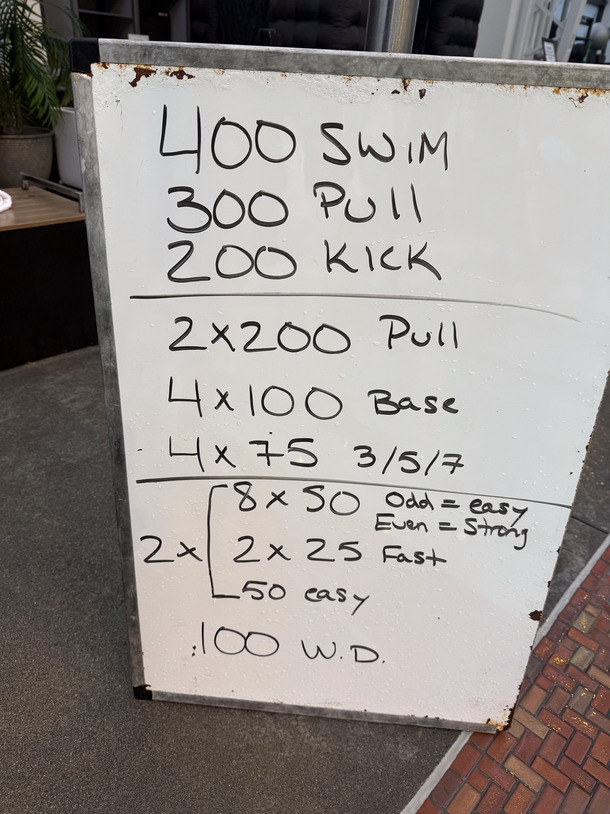 400 SWIM
300 Pull
200 KICK
2x200 Pull
4x100 Base
4x75 3/5/7
2x
8x50 Odd = easy
Even = Strong
2x25 Fast
50 easy
100 W.D.